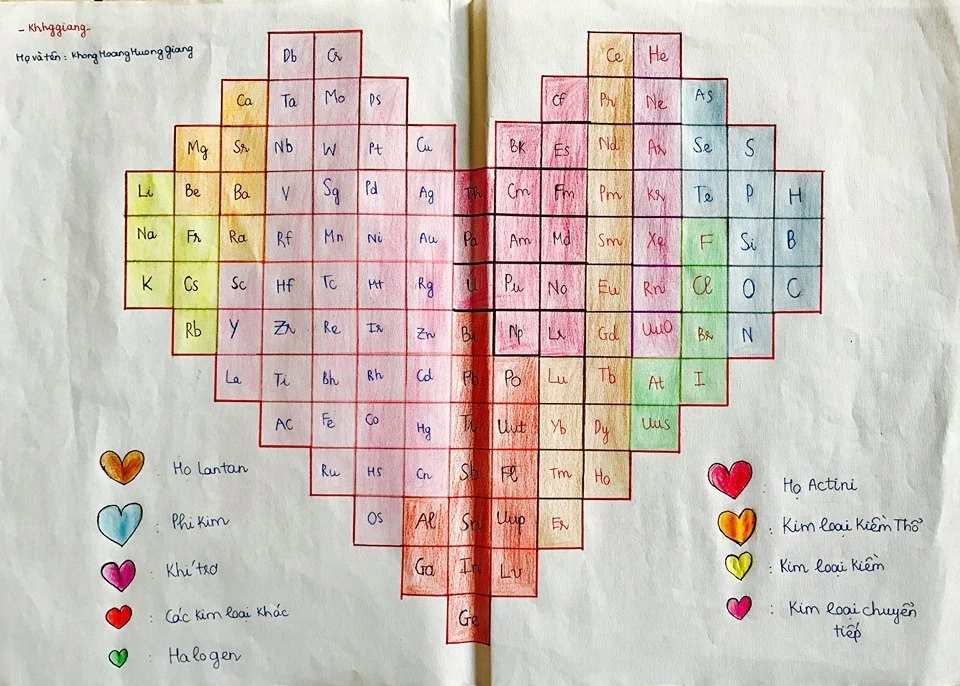 - Khhggiang -
Họ và tên : Khong Hoang Huong Giang
Db Cr Ce He
Ca Ta Mo Ds Cf Pr Ne As
Mg Sr Nb W Pt Cu BK Es Nd Ar Se S
Li Be Ba V Sg Pd Ag Th Cm Fm Pm Kr Te P H
Na Fr Ra Rf Mn Ni Au Pa Am Md Sm Xe F Si B
K Cs Sc Hf Tc Mt Rg U Pu No Eu Rn Cl O C
Rb Y Zr Re Ir Zn Bi Np Lr Gd UuO Br N
La Ti Bh Rh Cd Pb Po Lu Tb At I
AC Fe Co Hg Uut Yb Dy Uus
Ru HS Cn Sb Fl Tm Ho
OS Al Sn Uup Er
Ga In Lv
Ge
: Họ Lantan
: Phi kim
: Khí trơ
: Các kim loại khác
: Halogen
: Họ Actini
: Kim loại kiềm Thổ
: Kim loại kiềm
: Kim loại chuyển
tiếp